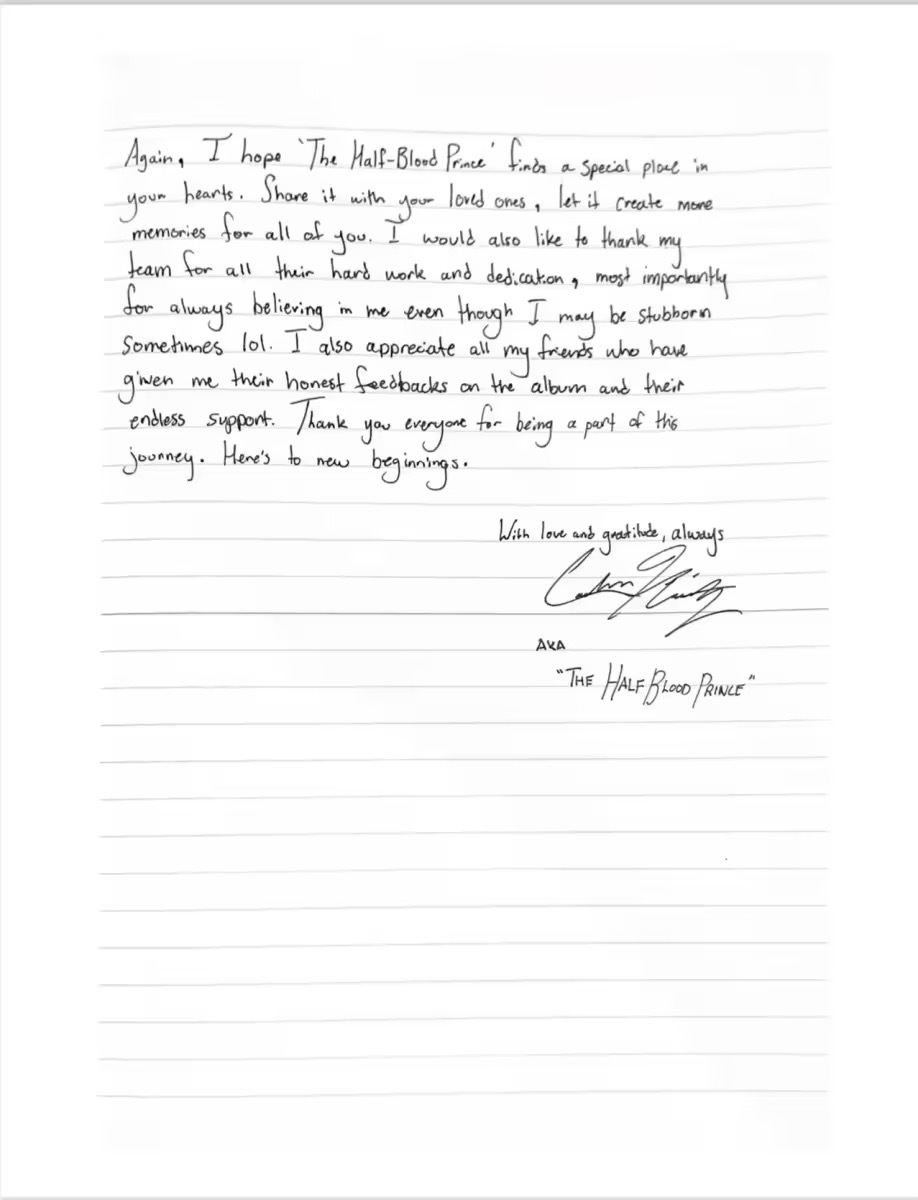 Again, I hope 'The Half-Blood Prince' finds a special place in
your hearts. Share it with your loved ones, let it create more
memories for all of you. I would also like to thank my
team for all their hard work and dedication, most importantly
for always believing in me even though I may be stubborn
sometimes lol. I also appreciate all my friends who have
given me their honest feedbacks on the album and their
endless support. Thank you everyone for being a part of this
journey. Here's to new beginnings.
With love and gratitude, always
AKA
"THE HALF BLOOD PRINCE"